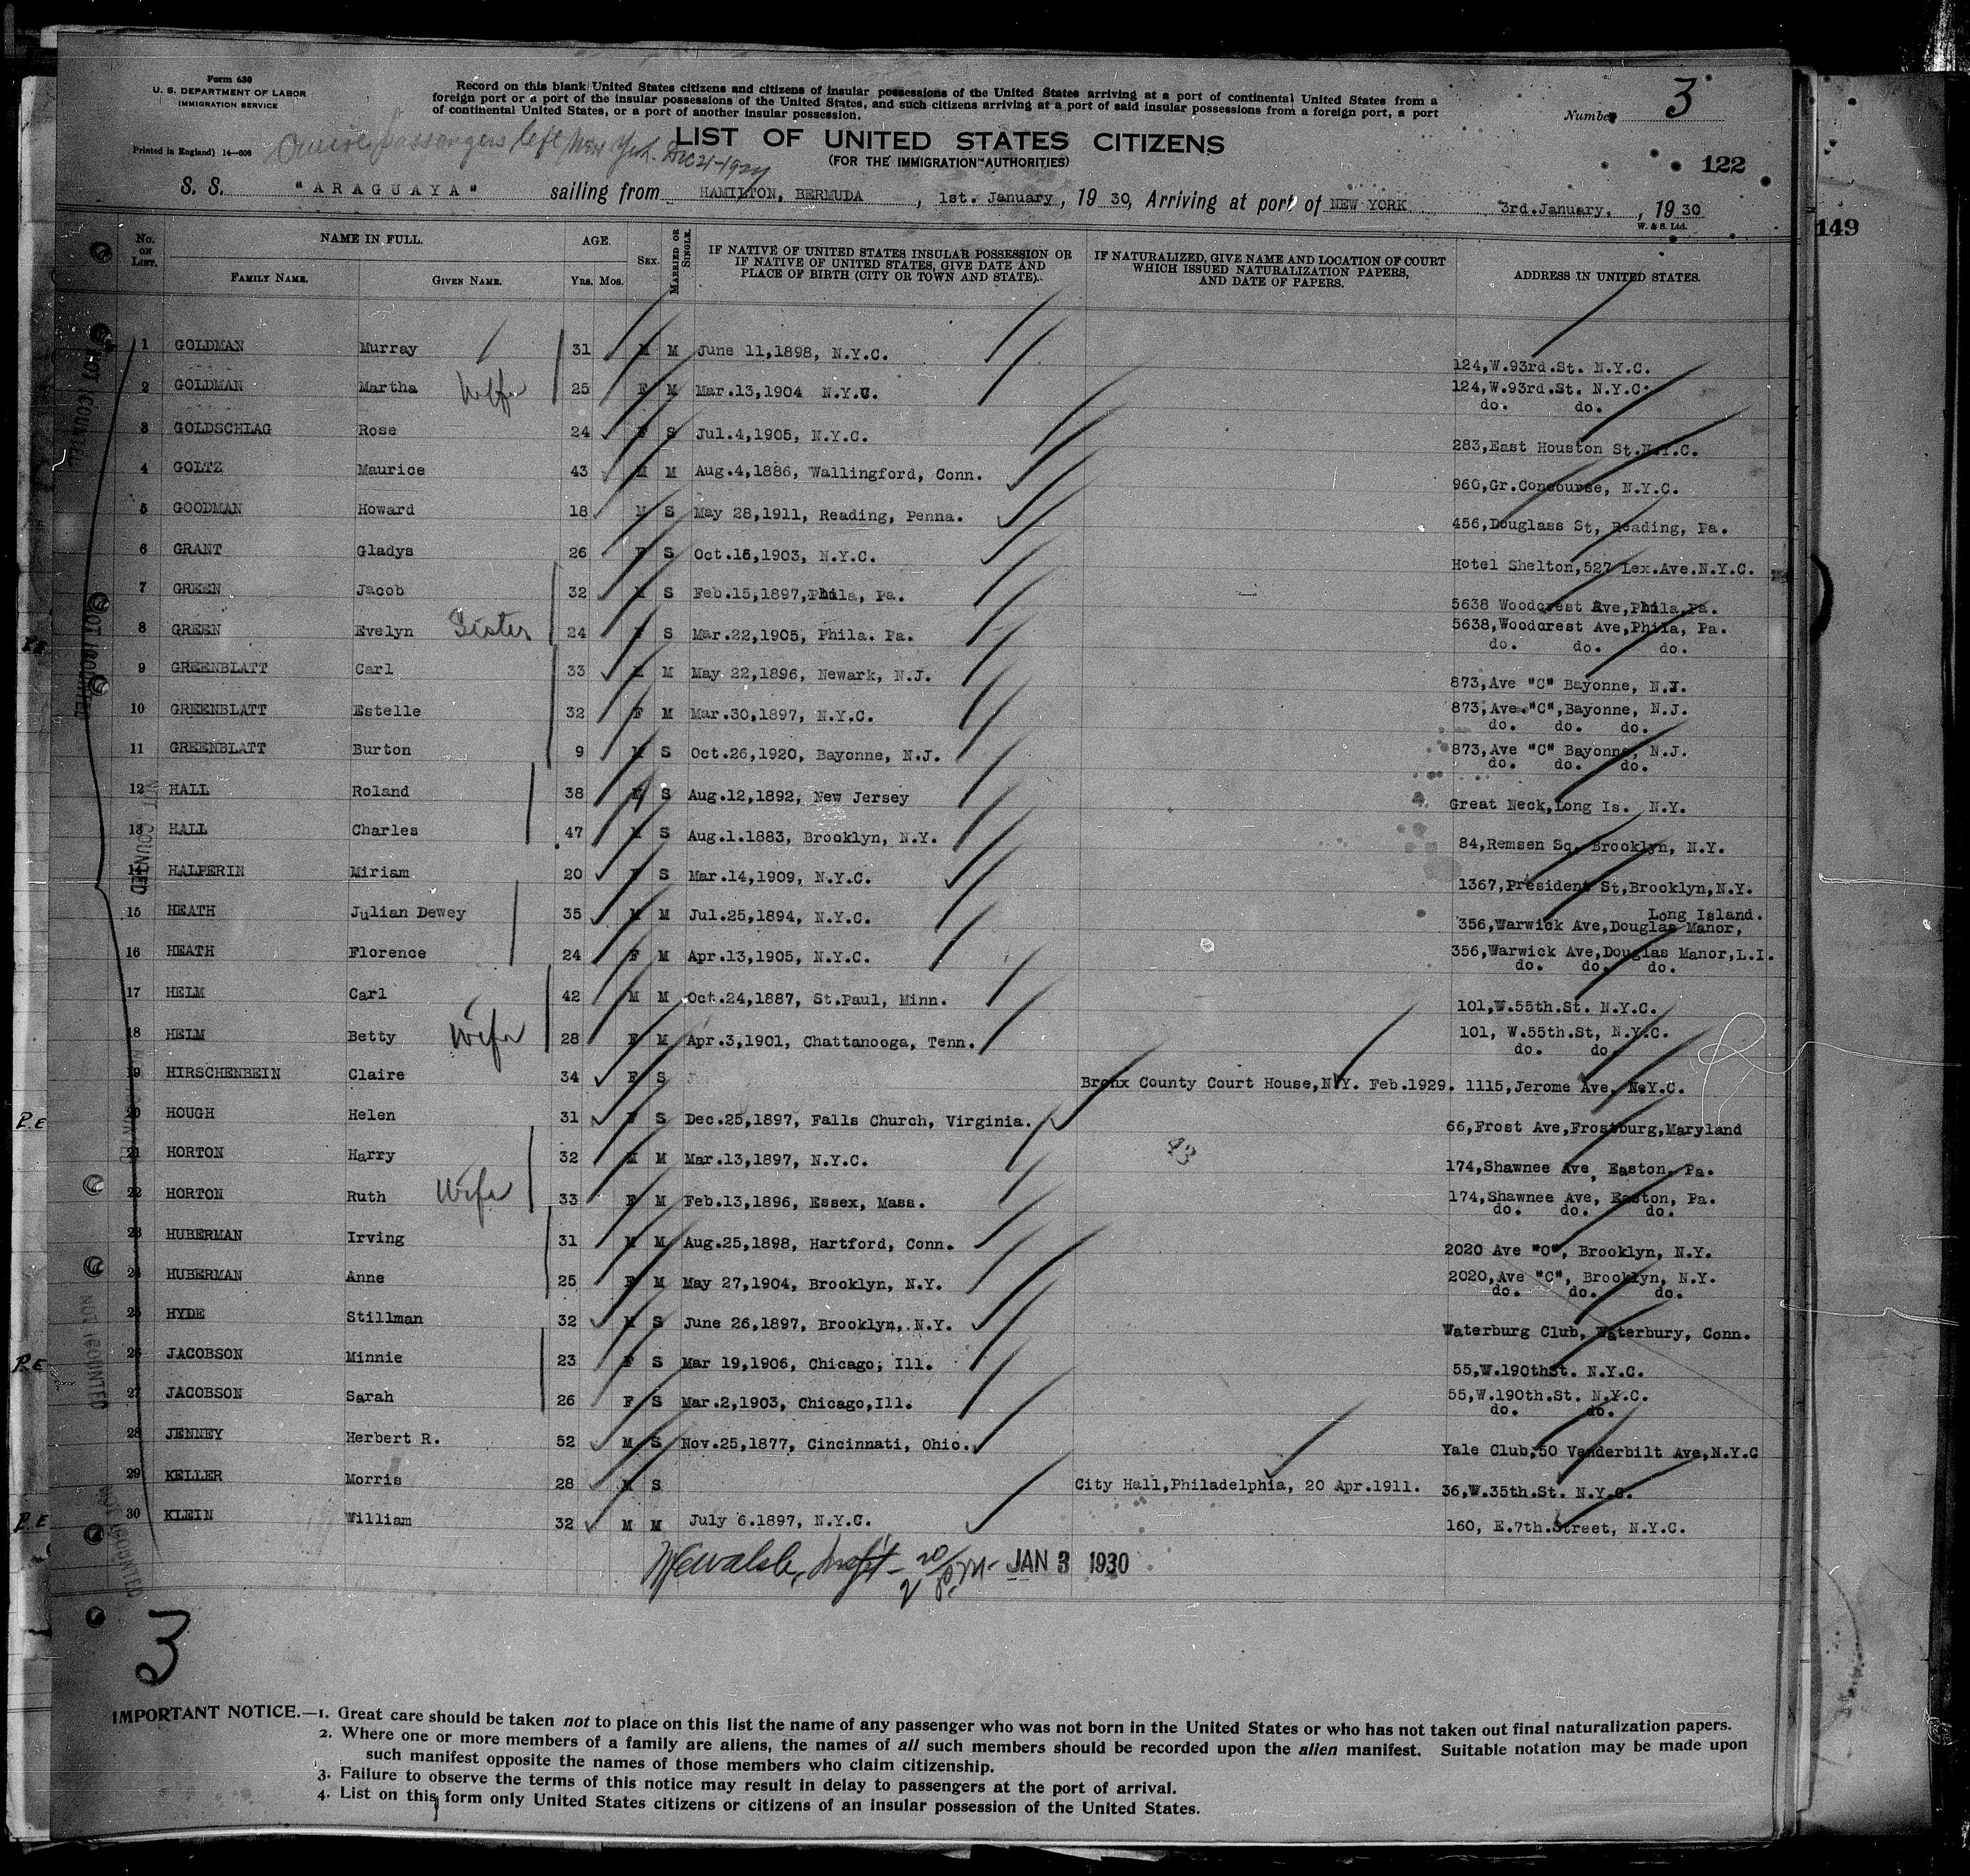 Form 630
U. S. DEPARTMENT OF LABOR
IMMIGRATION SERVICE
Record on this blank United States citizens and citizens of insular possessions of the United States arriving at a port of continental United States from a
foreign port or a port of the insular possessions of the United States, and such citizens arriving at a port of said insular possessions from a foreign port, a port
of continental United States, or a port of another insular possession.
Number 3
Printed in England) 14-608
passengers left New York
LIST OF UNITED STATES CITIZENS
(FOR THE IMMIGRATION AUTHORITIES)
122
S. S. "ARAGUAYA" sailing from HAMILTON, BERMUDA, 1st. January, 19 30, Arriving at port of NEW YORK 3rd.January, , 19 30
W. & S. Ltd.
149
No. ON LIST. NAME IN FULL. AGE. SEX. MARRIED OR SINGLE. IF NATIVE OF UNITED STATES INSULAR POSSESSION OR IF NATIVE OF UNITED STATES, GIVE DATE AND PLACE OF BIRTH (CITY OR TOWN AND STATE). IF NATURALIZED, GIVE NAME AND LOCATION OF COURT WHICH ISSUED NATURALIZATION PAPERS, AND DATE OF PAPERS. ADDRESS IN UNITED STATES.
FAMILY NAME. GIVEN NAME. Yrs. Mos.
1 GOLDMAN Murray 31 M M June 11,1898, N.Y.C. 124,W.93rd.St. N.Y.C.
2 GOLDMAN Martha Wife 25 F M Mar.13,1904 N.Y.C. 124,W.93rd.St. N.Y.C.
do. do.
3 GOLDSCHLAG Rose 24 F S Jul.4,1905, N.Y.C. 283,East Houston St.N.Y.C.
4 GOLTZ Maurice 43 M M Aug.4,1886, Wallingford, Conn. 960,Gr.Concourse, N.Y.C.
5 GOODMAN Howard 18 M S May 28,1911, Reading, Penna. 456,Douglass St, Reading, Pa.
6 GRANT Gladys 26 F S Oct.15,1903, N.Y.C. Hotel Shelton,527 Lex.Ave.N.Y.C.
7 GREEN Jacob 32 M S Feb.15,1897,Phila, Pa. 5638 Woodcrest Ave,Phila,Pa.
8 GREEN Evelyn Sister 24 F S Mar.22,1905, Phila. Pa. 5638,Woodcrest Ave,Phila, Pa.
do. do. do.
9 GREENBLATT Carl 33 M M May 22,1896, Newark, N.J. 873,Ave "C" Bayonne, N.J.
10 GREENBLATT Estelle 32 F M Mar.30,1897, N.Y.C. 873,Ave."C",Bayonne, N.J.
do. do. do.
11 GREENBLATT Burton 9 M S Oct.26,1920, Bayonne, N.J. 873,Ave "C" Bayonne, N.J.
do. do. do.
12 HALL Roland 38 M S Aug.12,1892, New Jersey Great Neck,Long Is. N.Y.
13 HALL Charles 47 M S Aug.1.1883, Brooklyn, N.Y. 84,Remsen Sq. Brooklyn, N.Y.
14 HALPERIN Miriam 20 F S Mar.14,1909, N.Y.C. 1367,President St,Brooklyn,N.Y.
15 HEATH Julian Dewey 35 M M Jul.25,1894, N.Y.C. 356,Warwick Ave,Douglas Manor, Long Island.
16 HEATH Florence 24 F M Apr.13,1905, N.Y.C. 356,Warwick Ave,Douglas Manor,L.I.
do. do. do.
17 HELM Carl 42 M M Oct.24,1887, St.Paul, Minn. 101,W.55th.St. N.Y.C.
18 HELM Betty Wife 28 F M Apr.3,1901, Chattanooga, Tenn. 101, W.55th.St, N.Y.C.
do. do
19 HIRSCHENBEIN Claire 34 F S Bronx County Court House,N.Y. Feb.1929. 1115,Jerome Ave, N.Y.C.
P.E 20 HOUGH Helen 31 F S Dec.25,1897, Falls Church, Virginia. 66,Frost Ave,Frostburg,Maryland
21 HORTON Harry 32 M M Mar.13,1897, N.Y.C. 43 174,Shawnee Ave, Easton, Pa.
22 HORTON Ruth Wife 33 F M Feb.13,1896, Essex, Mass. 174,Shawnee Ave, Easton, Pa.
do. do. do.
23 HUBERMAN Irving 31 M M Aug.25,1898, Hartford, Conn. 2020 Ave "O", Brooklyn, N.Y.
24 HUBERMAN Anne 25 F M May 27,1904, Brooklyn, N.Y. 2020,Ave "C", Brooklyn, N.Y.
do. do. do.
25 HYDE Stillman 32 M S June 26,1897, Brooklyn, N.Y. Waterburg Club, Waterbury, Conn.
P.E 26 JACOBSON Minnie 23 F S Mar 19,1906, Chicago, Ill. 55,W.190thSt. N.Y.C.
27 JACOBSON Sarah 26 F S Mar.2,1903, Chicago,Ill. 55,W.190th.St. N.Y.C.
do. do.
28 JENNEY Herbert R. 52 M S Nov.25,1877, Cincinnati, Ohio. Yale Club,50 Vanderbilt Ave,N.Y.C
29 KELLER Morris 28 M S City Hall,Philadelphia, 20 Apr.1911. 36,W.35th.St. N.Y.C.
P.E 30 KLEIN William 32 M M July 6.1897, N.Y.C. 160, E.7th.Street, N.Y.C.
JAN 3 1930
NOT COUNTED
3
IMPORTANT NOTICE.—1. Great care should be taken not to place on this list the name of any passenger who was not born in the United States or who has not taken out final naturalization papers.
2. Where one or more members of a family are aliens, the names of all such members should be recorded upon the alien manifest. Suitable notation may be made upon
such manifest opposite the names of those members who claim citizenship.
3. Failure to observe the terms of this notice may result in delay to passengers at the port of arrival.
4. List on this form only United States citizens or citizens of an insular possession of the United States.